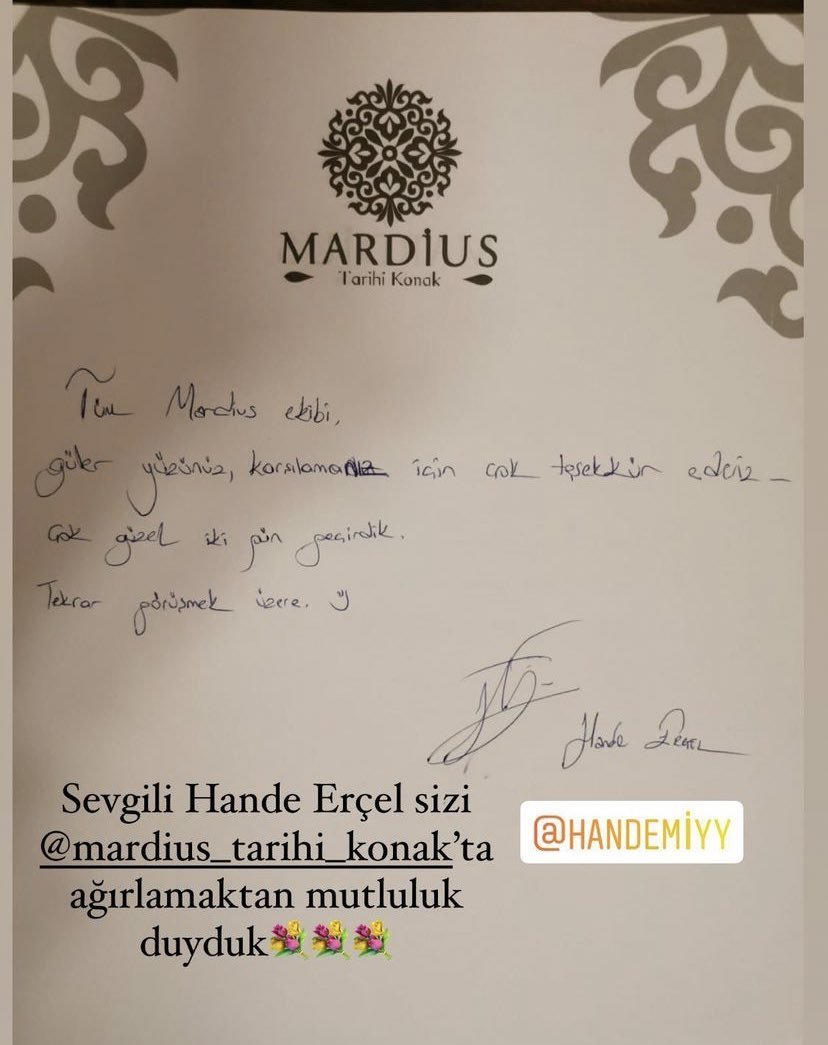 MARDİUS
Tarihi Konak
Tüm Mardius ekibi,
güler yüzünüz, karşılamanız için çok teşekkür ederiz _
Çok güzel iki gün geçirdik.
Tekrar görüşmek üzere. :)
Hande Erçel
Sevgili Hande Erçel sizi
@mardius_tarihi_konak’ta
ağırlamaktan mutluluk
duyduk💐💐💐
@HANDEMİYY